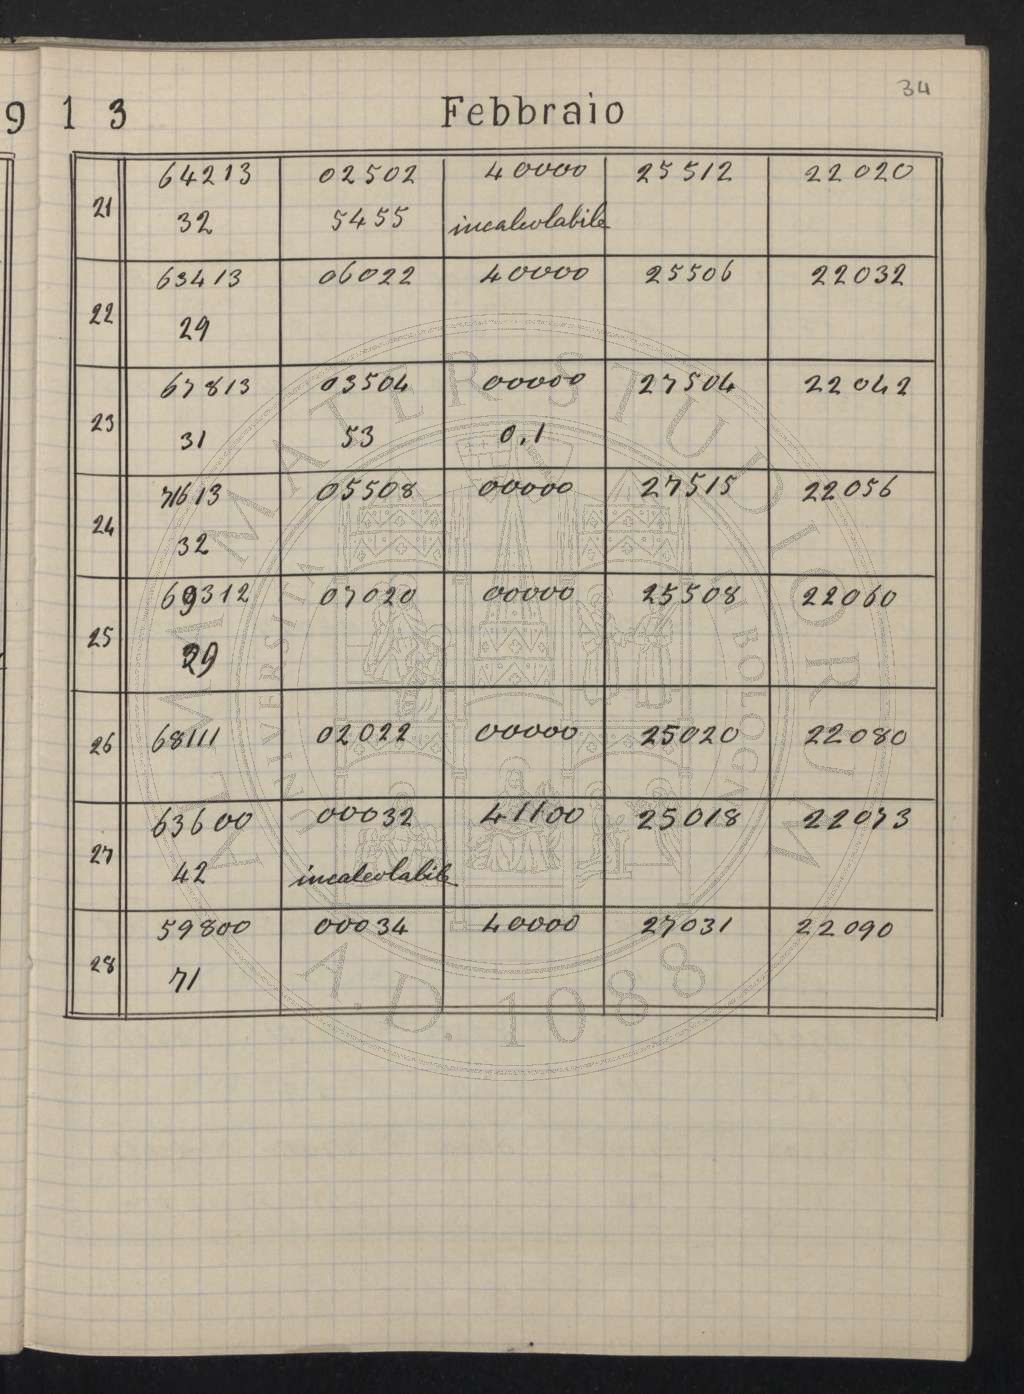 34
9 1 3 Febbraio
21 64213 02502 40000 25512 22020
32 5455 incalcolabile
22 63413 06022 40000 25506 22032
29
23 67813 03504 00000 27504 22042
31 53 0,1
24 71613 05508 00000 27515 22056
32
25 69312 07020 00000 25508 22060
29
26 68111 02022 00000 25020 22080
27 63600 00032 41100 25018 22073
42 incalcolabile
28 59800 00034 40000 27031 22090
71
ALMA MATER STUDIORUM
UNIVERSITÀ BOLOGNA
A.D. 1088